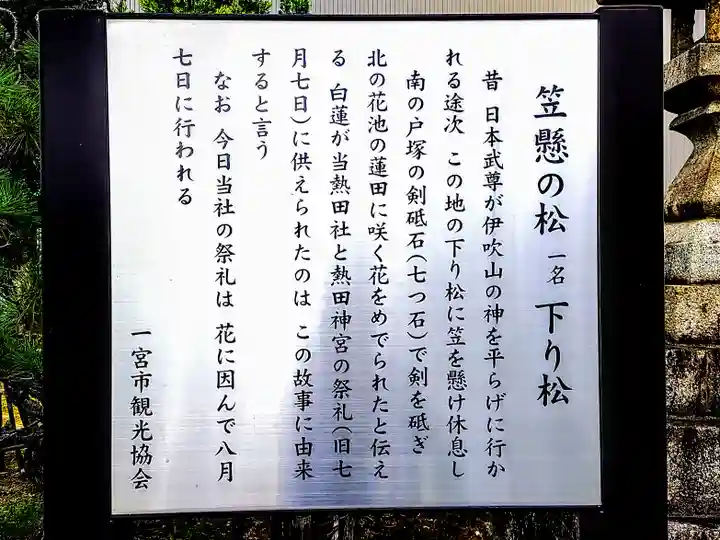 笠懸の松 一名 下り松
昔 日本武尊が伊吹山の神を平らげに行か
れる途次 この地の下り松に笠を懸け休息し
南の戸塚の剣砥石(七つ石)で剣を砥ぎ
北の花池の蓮田に咲く花をめでられたと伝え
る 白蓮が当熱田社と熱田神宮の祭礼(旧七
月七日)に供えられたのは この故事に由来
すると言う
なお 今日当社の祭礼は 花に因んで八月
七日に行われる
一宮市観光協会